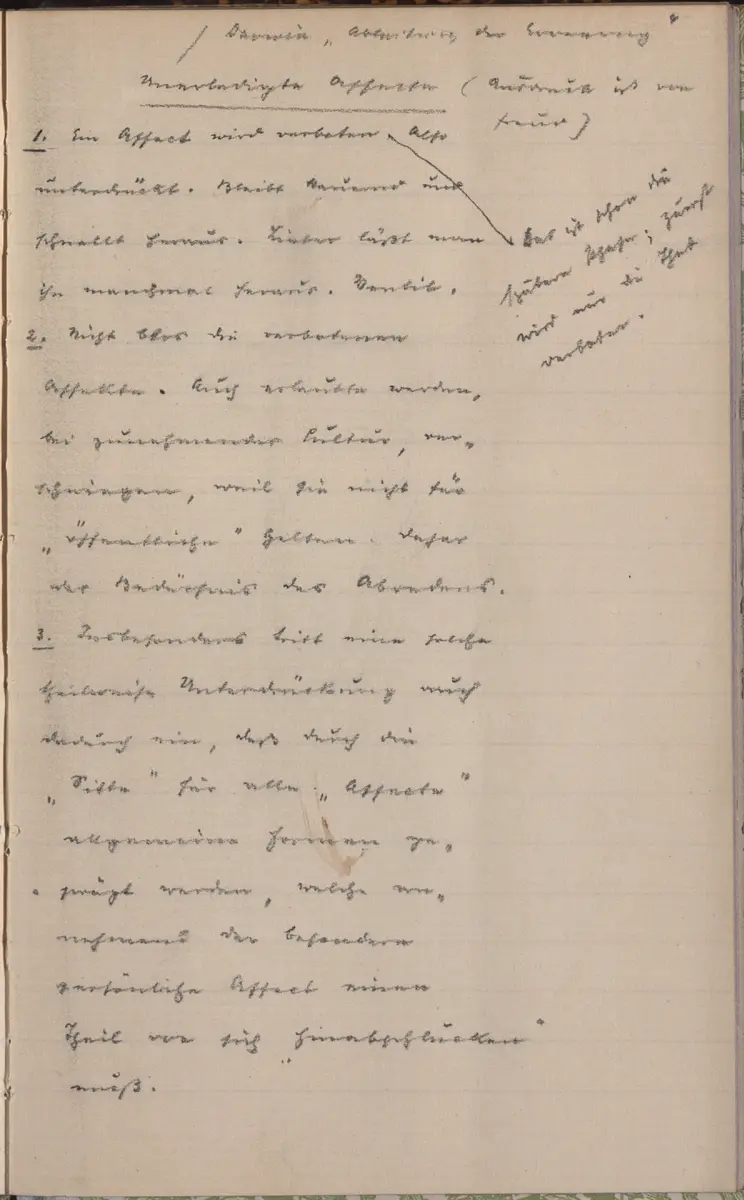 / Darwin „Ableitung der Erregung"
Unerledigte Affecte (Ausdruck ist von
Freud)
1. Ein Affect wird verboten. Also
unterdrückt. Bleibt dauernd und
schnellt heraus. Lieber läßt man
ihn manchmal heraus. Ventil.
Das ist schon die
spätere Phase; zuerst
wird nur die That
verboten.
2. Nicht blos die verbotenen
Affekte. Auch erlaubte werden,
bei zunehmender Cultur, ver„
schwiegen, weil sie nicht für
„öffentliche" gelten. Daher
das Bedürfnis des Abredens.
3. Insbesondere tritt eine solche
theilweise Unterdrückung auch
dadurch ein, daß durch die
„Sitte" für alle „Affecte"
allgemeine Formen ge„
prägt werden, welche an„
nehmend der besondere
persönliche Affect einen
Theil von sich „hinabschlucken"
muß.